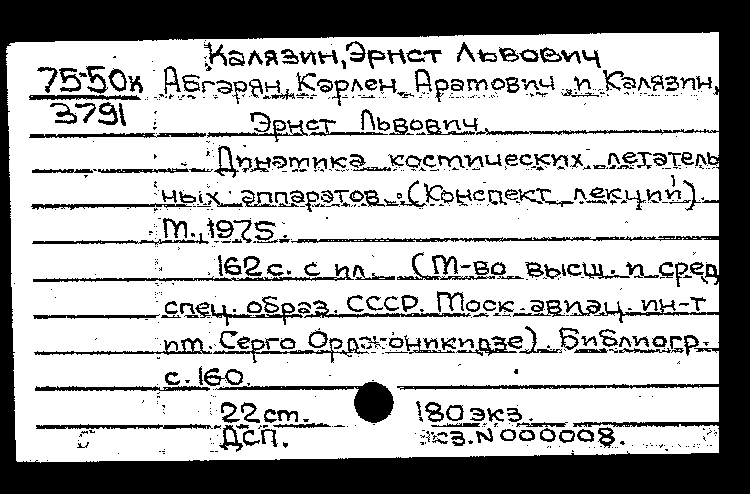 Калязин, Эрнст Львович
75-50к Абгарян, Карлен Аратович и Калязин,
3791 Эрнст Львович.
Динамика космических летатель
ных аппаратов. (Конспект лекций).
М., 1975.
162 с. с ил. (М-во высш. и сред
спец. образ. СССР. Моск. авиац. ин-т
им. Серго Орджоникидзе). Библиогр.
с. 160.
22 см. 180 экз.
ДСП. экз. N 000008.